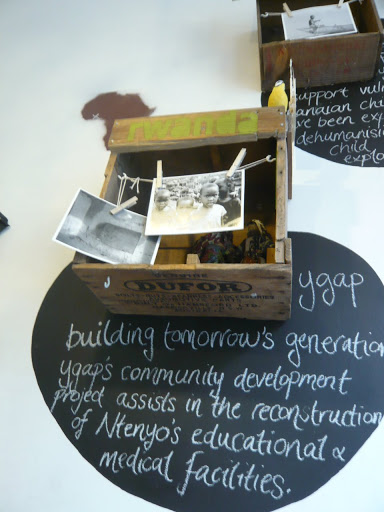 support vuln
anaian chi
ve been exp
dehumanisi
child
explo
rwanda
DUFOR
ygap
building tomorrow's generation
ygap's community development
project assists in the reconstruction
of Ntenyo's educational &
medical facilities.